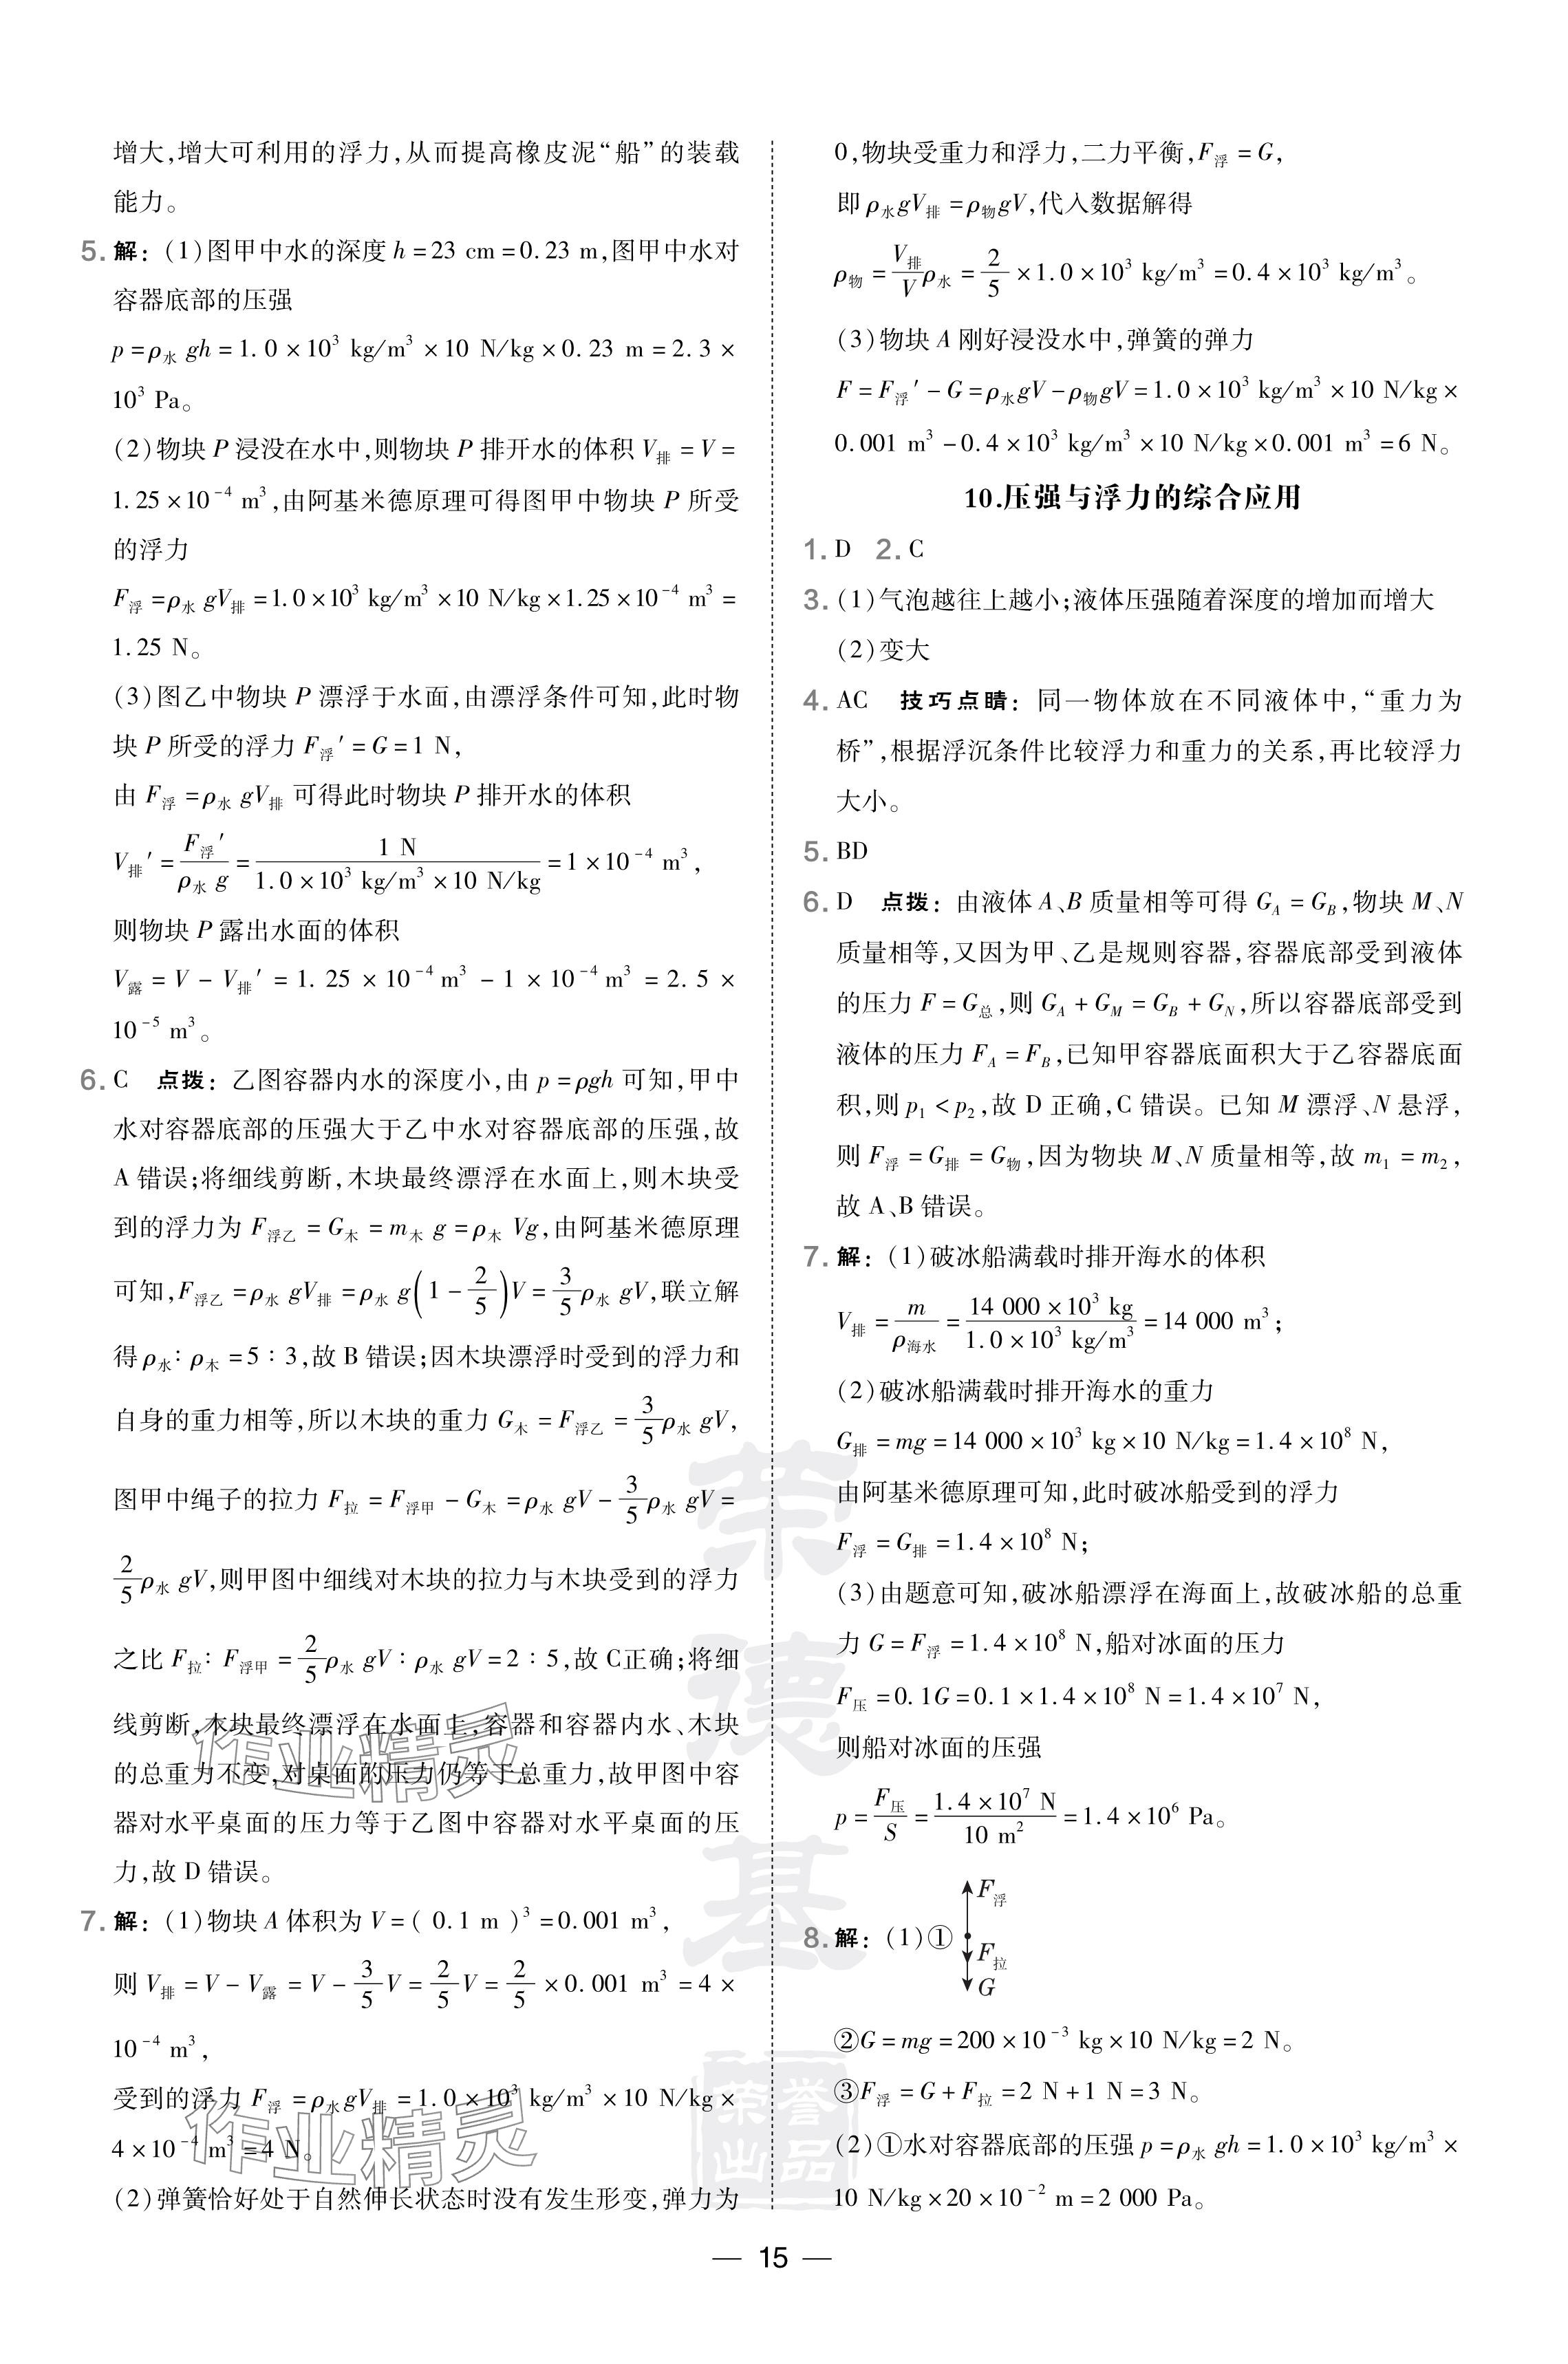 增大,增大可利用的浮力,从而提高橡皮泥“船”的装载
能力。
5. 解:(1)图甲中水的深度 h=23 cm=0.23 m,图甲中水对
容器底部的压强
p=ρ水 gh=1.0×10³ kg/m³×10 N/kg×0.23 m=2.3×
10³ Pa。
(2)物块 P 浸没在水中,则物块 P 排开水的体积 V排=V=
1.25×10⁻⁴ m³,由阿基米德原理可得图甲中物块 P 所受
的浮力
F浮=ρ水 gV排=1.0×10³ kg/m³×10 N/kg×1.25×10⁻⁴ m³=
1.25 N。
(3)图乙中物块 P 漂浮于水面,由漂浮条件可知,此时物
块 P 所受的浮力 F浮′=G=1 N,
由 F浮=ρ水 gV排 可得此时物块 P 排开水的体积
V排′=F浮′/(ρ水 g)=1 N/(1.0×10³ kg/m³×10 N/kg)=1×10⁻⁴ m³,
则物块 P 露出水面的体积
V露=V-V排′=1.25×10⁻⁴ m³-1×10⁻⁴ m³=2.5×
10⁻⁵ m³。
6. C 点拨:乙图容器内水的深度小,由 p=ρgh 可知,甲中
水对容器底部的压强大于乙中水对容器底部的压强,故
A 错误;将细线剪断,木块最终漂浮在水面上,则木块受
到的浮力为 F浮乙=G木=m木 g=ρ木 Vg,由阿基米德原理
可知,F浮乙=ρ水 gV排=ρ水 g(1-2/5)V=3/5ρ水 gV,联立解
得 ρ水∶ρ木=5∶3,故 B 错误;因木块漂浮时受到的浮力和
自身的重力相等,所以木块的重力 G木=F浮乙=3/5ρ水 gV,
图甲中绳子的拉力 F拉=F浮甲-G木=ρ水 gV-3/5ρ水 gV=
2/5ρ水 gV,则甲图中细线对木块的拉力与木块受到的浮力
之比 F拉∶F浮甲=2/5ρ水 gV∶ρ水 gV=2∶5,故 C正确;将细
线剪断,木块最终漂浮在水面上,容器和容器内水、木块
的总重力不变,对桌面的压力仍等于总重力,故甲图中容
器对水平桌面的压力等于乙图中容器对水平桌面的压
力,故 D 错误。
7. 解:(1)物块 A 体积为 V=(0.1 m)³=0.001 m³,
则 V排=V-V露=V-3/5V=2/5V=2/5×0.001 m³=4×
10⁻⁴ m³,
受到的浮力 F浮=ρ水gV排=1.0×10³ kg/m³×10 N/kg×
4×10⁻⁴ m³=4 N。
(2)弹簧恰好处于自然伸长状态时没有发生形变,弹力为
0,物块受重力和浮力,二力平衡,F浮=G,
即 ρ水gV排=ρ物gV,代入数据解得
ρ物=V排/Vρ水=2/5×1.0×10³ kg/m³=0.4×10³ kg/m³。
(3)物块 A 刚好浸没水中,弹簧的弹力
F=F浮′-G=ρ水gV-ρ物gV=1.0×10³ kg/m³×10 N/kg×
0.001 m³-0.4×10³ kg/m³×10 N/kg×0.001 m³=6 N。
10.压强与浮力的综合应用
1. D 2. C
3. (1)气泡越往上越小;液体压强随着深度的增加而增大
(2)变大
4. AC 技巧点睛:同一物体放在不同液体中,“重力为
桥”,根据浮沉条件比较浮力和重力的关系,再比较浮力
大小。
5. BD
6. D 点拨:由液体 A、B 质量相等可得 G_A=G_B,物块 M、N
质量相等,又因为甲、乙是规则容器,容器底部受到液体
的压力 F=G总,则 G_A+G_M=G_B+G_N,所以容器底部受到
液体的压力 F_A=F_B,已知甲容器底面积大于乙容器底面
积,则 p₁<p₂,故 D 正确,C 错误。已知 M 漂浮、N 悬浮,
则 F浮=G排=G物,因为物块 M、N 质量相等,故 m₁=m₂,
故 A、B 错误。
7. 解:(1)破冰船满载时排开海水的体积
V排=m/ρ海水=14 000×10³ kg/(1.0×10³ kg/m³)=14 000 m³;
(2)破冰船满载时排开海水的重力
G排=mg=14 000×10³ kg×10 N/kg=1.4×10⁸ N,
由阿基米德原理可知,此时破冰船受到的浮力
F浮=G排=1.4×10⁸ N;
(3)由题意可知,破冰船漂浮在海面上,故破冰船的总重
力 G=F浮=1.4×10⁸ N,船对冰面的压力
F压=0.1G=0.1×1.4×10⁸ N=1.4×10⁷ N,
则船对冰面的压强
p=F压/S=1.4×10⁷ N/10 m²=1.4×10⁶ Pa。
8. 解:(1)①
F浮
F拉
G
②G=mg=200×10⁻³ kg×10 N/kg=2 N。
③F浮=G+F拉=2 N+1 N=3 N。
(2)①水对容器底部的压强 p=ρ水 gh=1.0×10³ kg/m³×
10 N/kg×20×10⁻² m=2 000 Pa。
— 15 —
荣德基
荣誉出品
作业精灵
作业精灵